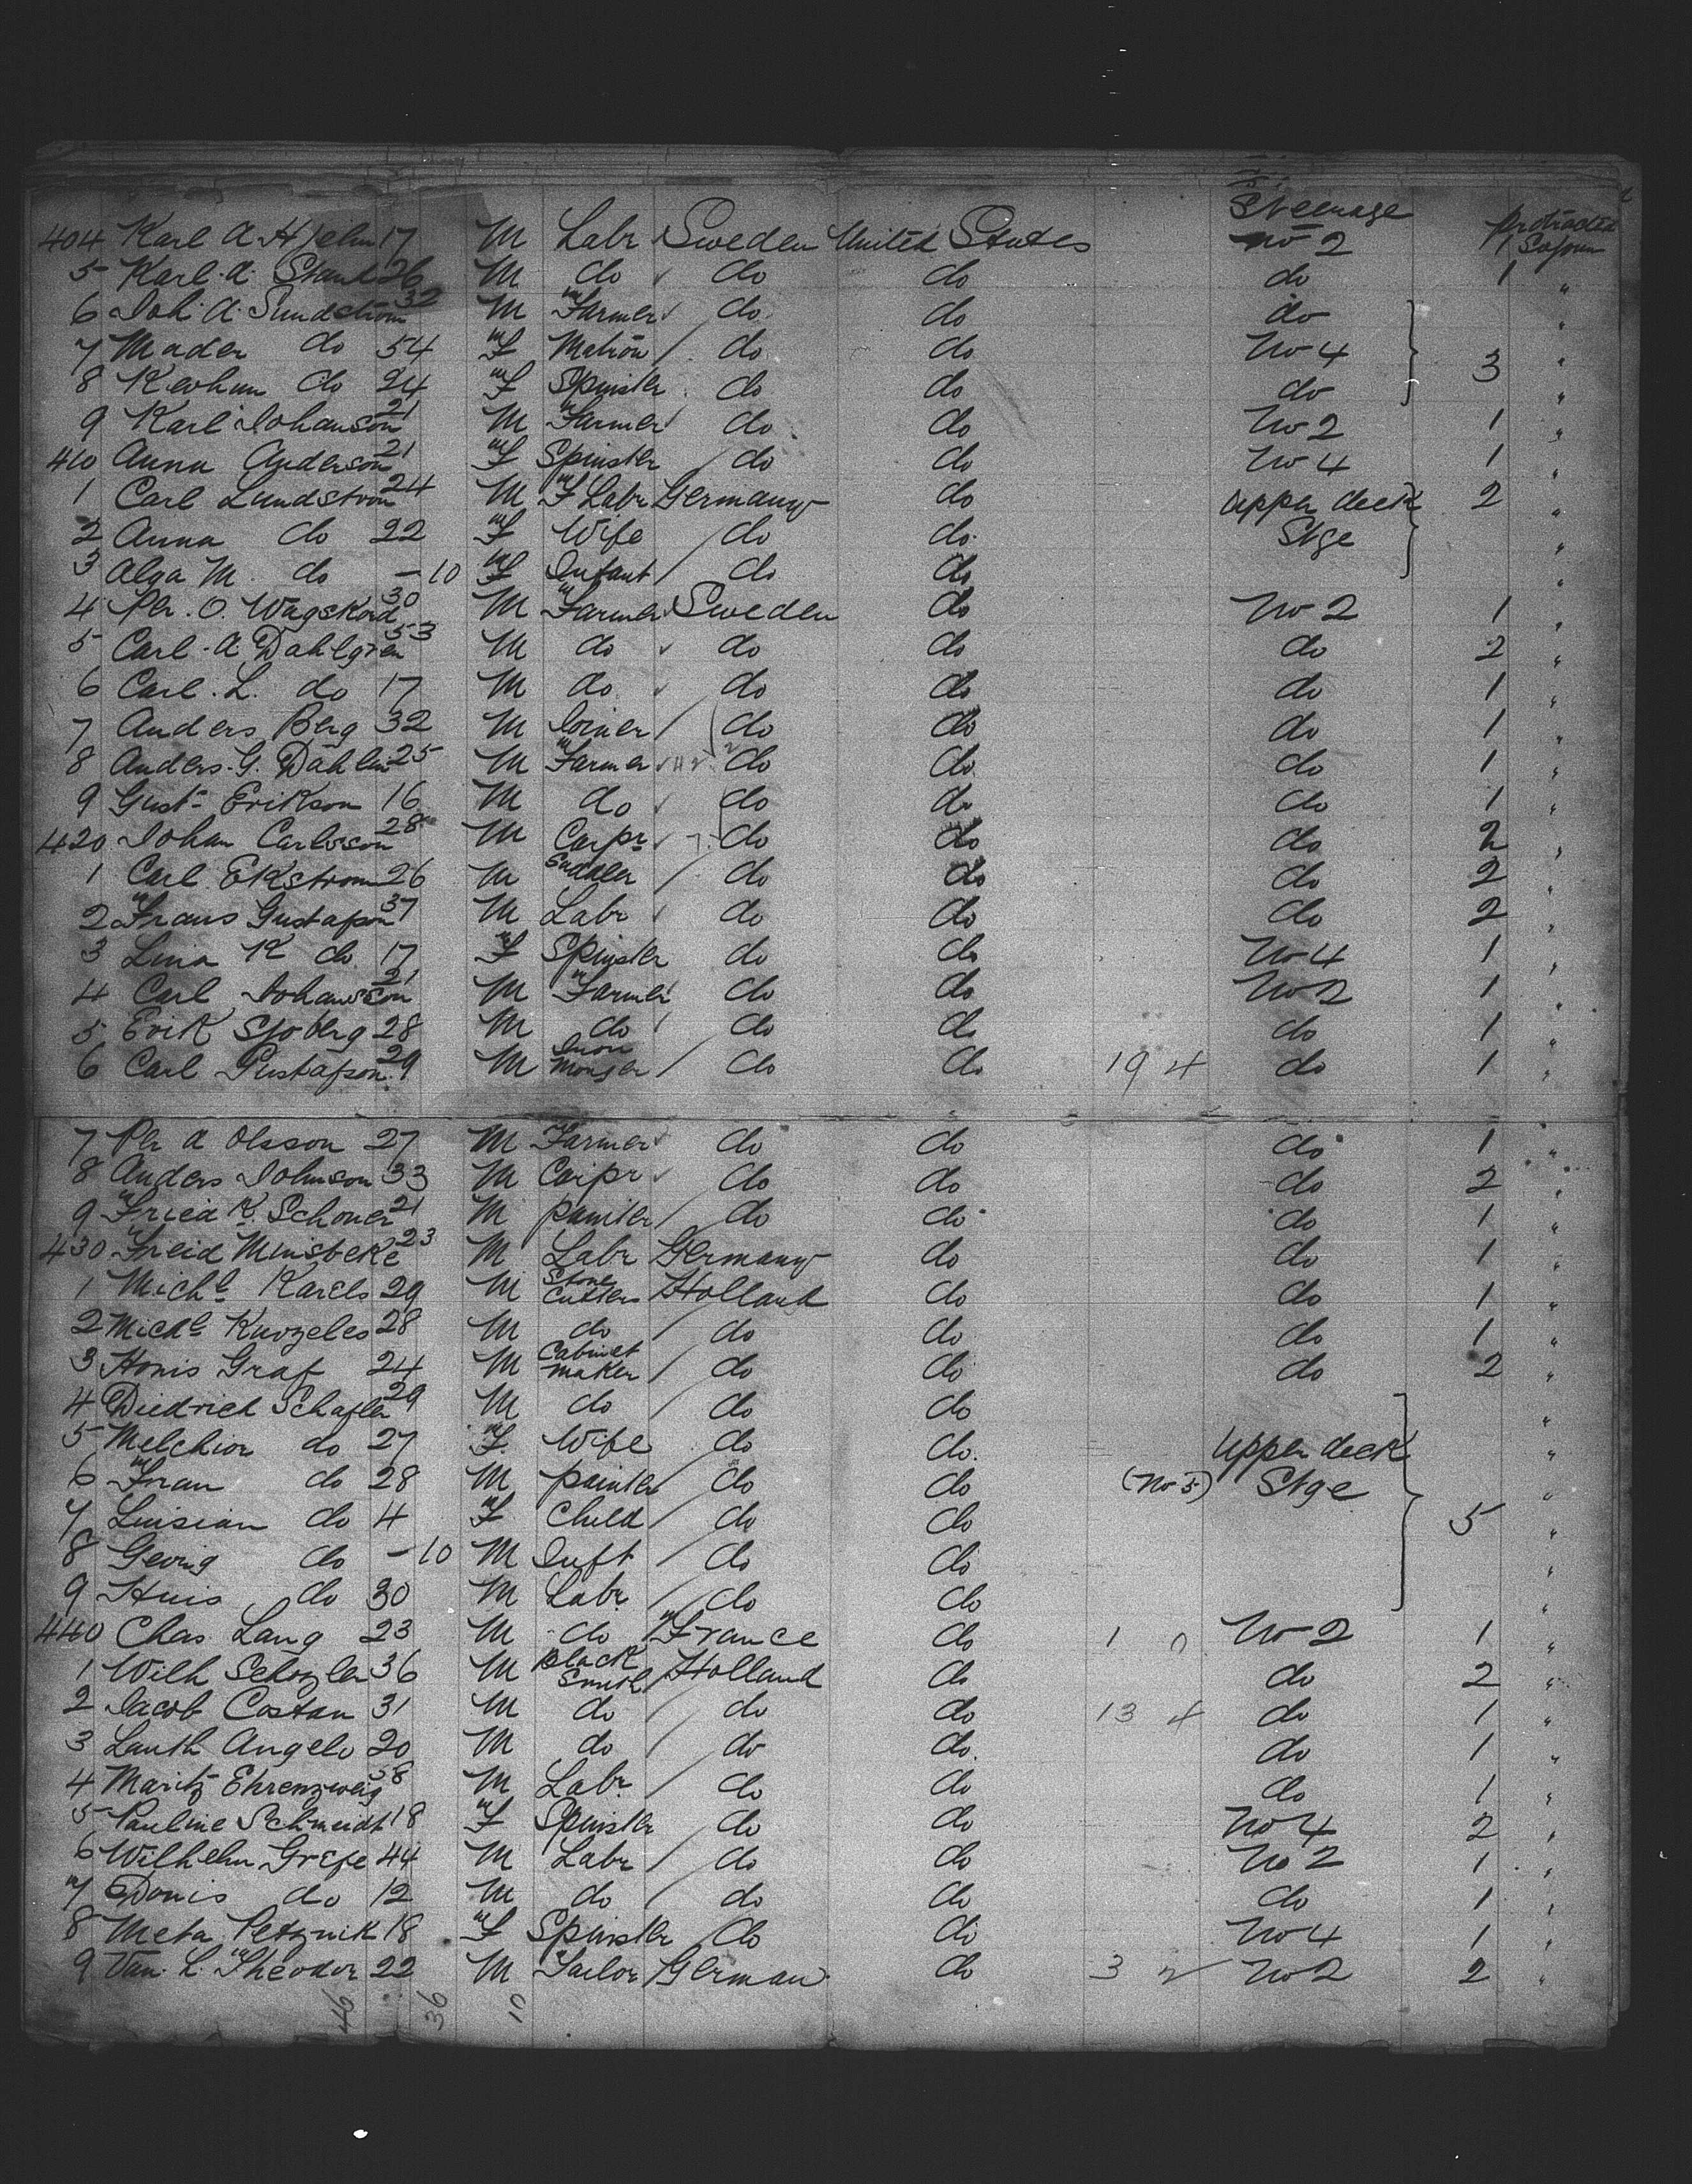 Steerage Protracted
404 Karl A Hjelm 17 M Labr Sweden United States No 2 1 Sojourn
5 Karl A. Strand 26 M do do do do 1 "
6 Joh. A. Sundstrom 32 M Farmer do do do "
7 Mader do 54 F Matron do do No 4 3 "
8 do 24 F Spinster do do do "
9 Karl Johanson 21 M Farmer do do No 2 1 "
410 Anna Anderson 21 F Spinster do do No 4 1 "
1 Carl Lundstrom 24 M Labr Germany do Upper deck 2 "
2 Anna do 22 F Wife do do Stge "
3 Alga M. do - 10 F Infant do do "
4 Per. O. Wagskord 30 M Farmer Sweden do No 2 1 "
5 Carl. A Dahlgren 53 M do do do do 2 "
6 Carl. L. do 17 M do do do do 1 "
7 Anders Berg 32 M Joiner do do do 1 "
8 Anders. G. Dahlin 25 M Farmer do do do 1 "
9 Gust Erikson 16 M do do do do 1 "
420 Johan Carlsson 28 M Carpr do do do 2 "
1 Carl Ekstrom 26 M Saddler do do do 2 "
2 Frans Gustafson 37 M Labr do do do 2 "
3 Lina K do 17 F Spinster do do No 4 1 "
4 Carl Johansson 21 M Farmer do do No 2 1 "
5 Erik Sjoberg 28 M do do do do 1 "
6 Carl Gustafson 29 M Iron Monger do do 19 4 do 1 "
7 Per A Olsson 27 M Farmer do do do 1 "
8 Anders Johnson 33 M Carpr do do do 2 "
9 Fried K. Schoner 21 M painter do do do 1 "
430 Freid Minsteke 23 M Labr Germany do do 1 "
1 Michl Karels 29 M Stone Cutters Holland do do 1 "
2 Michl Knozeles 28 M do do do do 1 "
3 Honis Graf 24 M Cabinet maker do do do 2 "
4 Diedrich Schafler 29 M do do do "
5 Melchior do 27 F. Wife do do. Upper deck "
6 Fran do 28 M painter do do (No 5) Stge "
7 Luisian do 4 F Child do do 5 "
8 Georg do - 10 M Inft do do "
9 Huis do 30 M Labr do do "
440 Chas. Lang 23 M do France do 1 0 No 2 1 "
1 Wilh Schozler 36 M Black Smith Holland do do 2 "
2 Jacob Costan 31 M do do do 13 4 do 1 "
3 Lauth Angelo 20 M do do do. do 1 "
4 Maritz Ehrenzweig 38 M Labr do do do 1 "
5 Pauline Schmidt 18 F Spinster do do No 4 2 "
6 Wilhelm Grefe 44 M Labr do do No 2 1 "
7 Donis do 12 M do do do do 1 "
8 Meta Petznik 18 F Spinster do do No 4 1 "
9 Van. L. Theodor 22 M Tailor German do 3 2 No 2 2 "
46 36 10